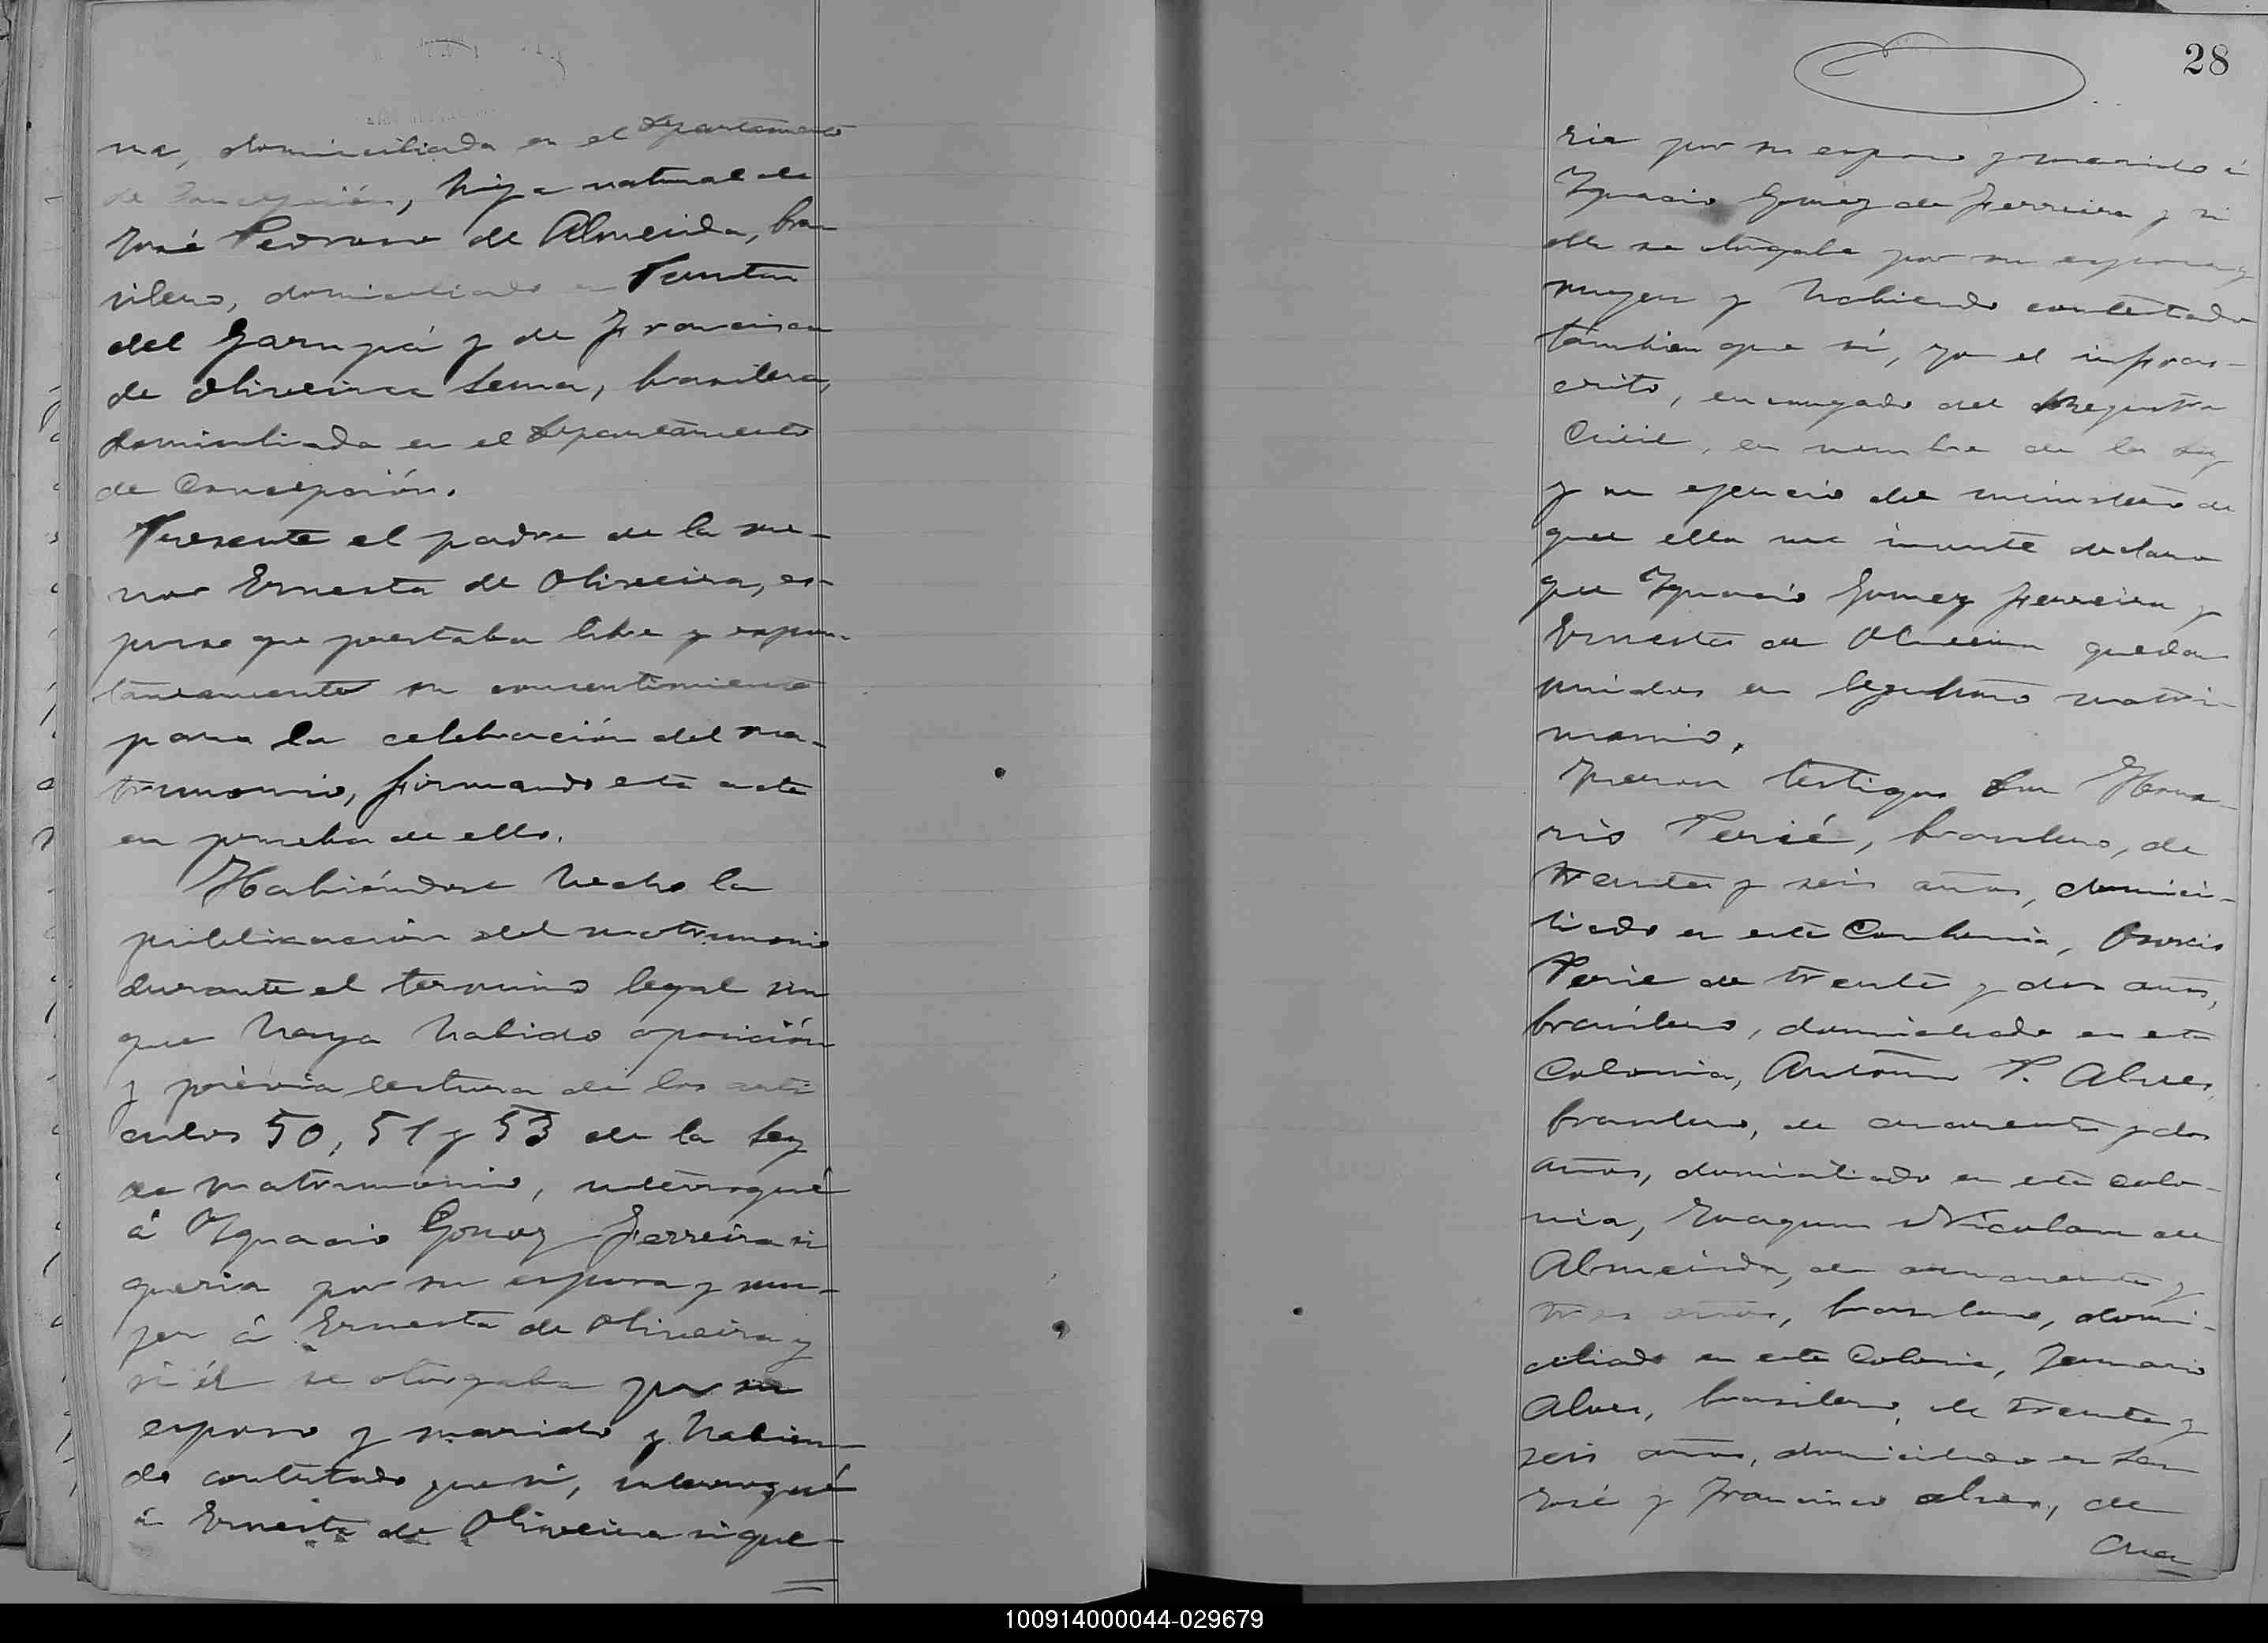 na, domiciliada en el Departamento
de Concepción, hija natural de
José Pedroso de Almeida, bra
silero, domiciliado en Puntas
del Garupá y de Francisca
de Oliveira Lema, brasilera,
domiciliada en el Departamento
de Concepción.
Presente el padre de la me-
nor Ernesta de Oliveira, es-
puso que prestaba libre y espon-
táneamente su consentimiento
para la celebración del ma-
trimonio, firmando esta acta
en prueba de ello.
Habiéndose hecho la
publicación del matrimonio
durante el termino legal sin
que haya habido oposición
y prévia lectura de los arti
culos 50, 51 y 53 de la Ley
de matrimonio, interrogué
á Ygnacio Gomez Ferreira si
queria por su esposa y mu-
jer á Ernesta de Oliveira y
si él se otorgaba por su
esposo y marido y habien-
do contestado que si, interrogué
á Ernesta de Oliveira si que-
28
ria por su esposo y marido á
Ygnacio Gomez de Ferreira y si
ella se otorgaba por su esposa y
mujer y habiendo contestado
tambien que si, yo el infras-
crito, encargado del Registro
Civil, en nombre de la Ley
y en ejercicio del ministerio de
que ella me inviste declaro
que Ygnacio Gomez Ferreira y
Ernesta de Oliveira quedan
unidos en legitimo matri-
monio.
Fueron testigos Don Hono-
rio Perié, brasilero, de
treinta y seis años, domici-
liado en esta Colonia,
Perié de treinta y dos años,
brasilero, domiciliado en esta
Colonia, Antonio P. Alves,
brasilero, de cuarenta y dos
años, domiciliado en esta Colo-
nia, Joaquin Nicolau de
Almeida, de cuarenta y
tres años, brasilero, domi-
ciliado en esta Colonia, Januario
Alves, brasilero, de treinta y
seis años, domiciliado en San
José y Francisco Alves, de
cua
100914000044-029679